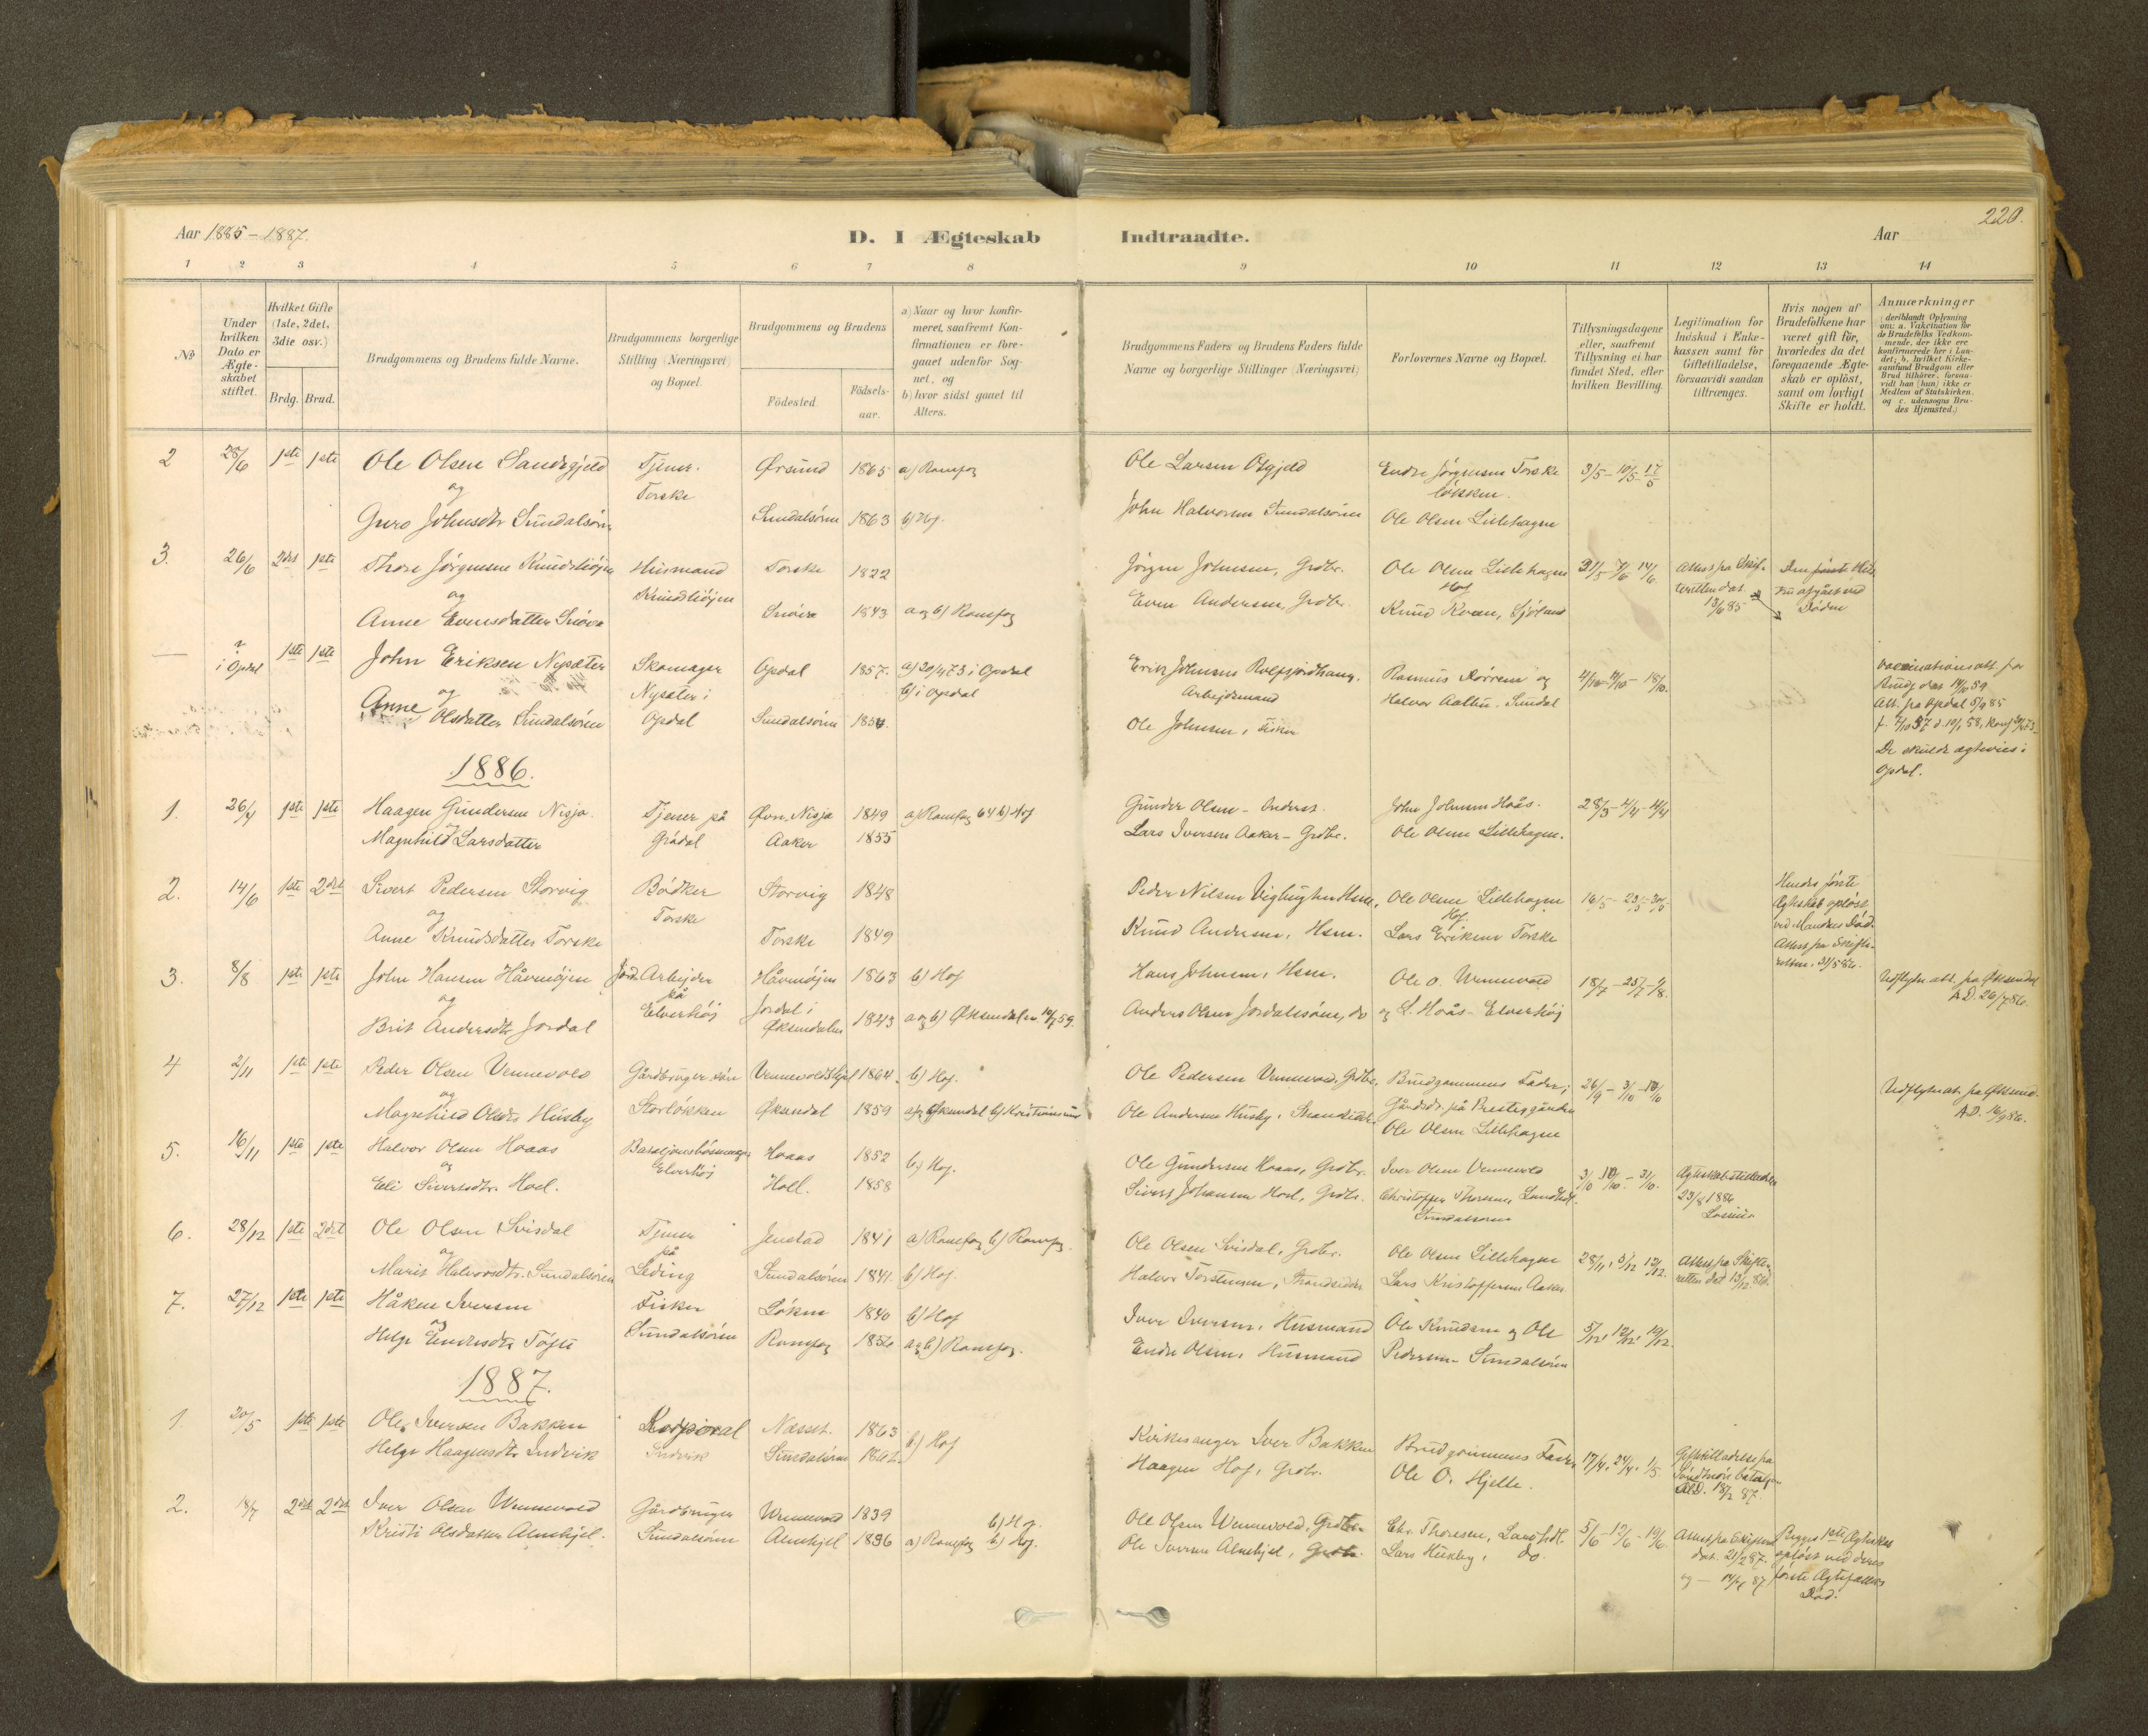 Aar 1885 – 1887.
D. I Ægteskab Indtraadte.
Aar
220.
1 2 3 4 5 6 7 8 9 10 11 12 13 14
No
Under hvilken Dato er Ægteskabet stiftet.
Hvilket Gifte (1ste, 2det, 3die osv.)
Brdg. Brud.
Brudgommens og Brudens fulde Navne.
Brudgommens borgerlige Stilling (Næringsvei) og Bopæl.
Brudgommens og Brudens
Födested.
Födsels-aar.
a) Naar og hvor konfirmeret, saafremt Konfirmationen er foregaaet udenfor Sognet, og
b) hvor sidst gaaet til Alters.
Brudgommens Faders og Brudens Faders fulde Navne og borgerlige Stillinger (Næringsvei)
Forlovernes Navne og Bopæl.
Tillysningsdagene eller, saafremt Tillysning ei har fundet Sted, efter hvilken Bevilling.
Legitimation for Indskud i Enkekassen samt for Giftetilladelse, forsaavidt saadan tiltrænges.
Hvis nogen af Brudefolkene har været gift för, hvorledes da det foregaaende Ægteskab er oplöst, samt om lovligt Skifte er holdt.
Anmærkninger (deriblandt Oplysning om: a. Vakcination for de Brudefolks Vedkommende, der ikke ere konfirmerede her i Landet; b. hvilket Kirkesamfund Brudgom eller Brud tilhörer, forsaavidt han (hun) ikke er Medlem af Statskirken, og c. udensogns Brudes Hjemsted.)
2 28/6 1ste 1ste Ole Olsen Sandsgjeld Tjener. Ørsund 1865 a) Romfog Ole Larsen Ølgjeld Endre Jörgensen Torske 3/5 – 10/5 17/5
og Torske lökken.
Guro Johnsdtr Sundalsören Sundalsören 1863 b) Hof. John Halvorsen Sundalsören Ole Olsen Lillehagen
3. 26/6 2det 1ste Thore Jörgensen Knudsliöjen Husmand Torske 1822 Jörgen Johnsen, Grdbr. Ole Olsen Lillehagen 31/5 7/6 14/6. Attest fra Skifteretten dat. 13/6 85
og Knudsliöjen Hof
Anne Evensdatter Snöva Snöva 1843 a og b) Romfog Even Andersen, Grdbr. Knud Kvan, Sjölund
Döden
i Opdal 1ste 1ste John Eriksen Nysæter Skomager Opdal 1857. a) 20/4 73 i Opdal Erik Johnsen Rolfsjordhaug. Rasmus Dörrem og 4/10 – 11/10 – 18/10.
og Nysæter i b) i Opdal Arbejdsmand Halvor Aalbu. Sundal
Anne Olsdatter Sundalsören Opdal Sundalsören Ole Johnsen, Fisker
Vaccinationsatt. for Brudg. dat. 14/10 59
Att. fra Opdal 5/9 85
De skulde ægtevies i Opdal.
1886.
1. 26/4 1ste 1ste Haagen Gundersen Nisja. Tjener på Övre. Nisja 1849 a) Romfog 64 b) Hof Gunder Olsen – Inderst. John Johnsen Hoås. 28/3 – 4/4 –
og
Magnhild Larsdatter Grödal Aaker 1855 Lars Iversen Aaker – Grdbr. Ole Olsen Lillehagen.
2. 14/6 1ste 2det Sivert Pedersen Storvig Bödker Storvig 1848 Peder Nilsen Ole Olsen Lillehagen 16/5 – 23/5 – 30/5
og Torske Hof.
Anne Knudsdatter Torske Torske 1849 Knud Andersen, Hsm. Lars Eriksen Torske
Hendes förste Ægteskab oplöst ved Mandens Död. Attest fra Skifteretten. 31/5 86.
3. 8/8 1ste 1ste John Hansen Håvenöjen Jord. Arbejder Håvenöjen 1863 b) Hof Hans Johnsen, Hsm. Ole O. Vennevold 18/7 – 25/7 – 1/8. Udflytn. att. fra Øksendal A.D. 26/7 86.
og på
Brit Andersdtr Jordal Elverhöj Jordal i Øksendalen 1843 a og b) Øksendalen 59. Anders Olsen Jordalsören, do og L. Hoås – Elverhöj
4 2/11 1ste 1ste Peder Olsen Vennevold Gårdbruger sön 1864. b) Hof. Ole Pedersen Vennevold. Grdbr. Brudgommens Fader; 26/9 – 3/10 – 10/10 Udflytn.att. fra Øksend. A.D. 16/9 86.
og Gårdsdr. på Prestegården
Magnhild Olsdtr Husby Storlökken Øksendal 1859 a) Øksendal b) Kristiansund Ole Andersen Husby, Strandsidder. Ole Olsen Lillehagen
5. 16/11 1ste 1ste Halvor Olsen Hoaas Hoaas 1852 b) Hof. Ole Gundersen Hoaas, Grdbr. Iver Olsen Vennevold 3/10 10/10 – 31/10.
og Elverhöj
Eli Sivertsdtr. Hoel. Holl. 1858 Sivert Johansen Hoel, Grdbr. Christoffer Thoresen, Landhdl. 23/8 1886
Sundalsören
6. 28/12 1ste 2det Ole Olsen Svisdal Tjener Jenstad 1841 a) Romfog b) Romfog. Ole Olsen Svisdal, Grdbr. Ole Olsen Lillehagen 28/11, 5/12 12/12. Attest fra Skifteretten dat 13/12 86.
og på
Marit Halvorsdtr. Sundalsören Leding Sundalsören 1841. b) Hof Halvor Torstensen, Strandsidder Lars Kristoffersen Aaker.
7. 27/12 1ste 1ste Håken Iversen Fisker Löken 1840 b) Hof Iver Iversen, Husmand Ole Knudsen og Ole 5/12, 12/12, 19/12.
og
Helge Endresdtr Töfte Sundalsören Romfog 1854 a og b) Romfog. Endre Olsen, Husmand Pedersen – Sundalsören
1887.
1. 20/5 1ste 1ste Ole Iversen Bakken Korporal Nesset. 1863 b) Hof Kirkesanger Iver Bakken Brudgommens Fader 17/4. 24/4. 1/5. Giftetilladelse fra
Helge Haagensdtr Indvik Indvik Sundalsören 1862. Haagen Hof, Grdbr. Ole O. Hjelle. A.D. 18/2 87.
2. 18/7 2det 2det Iver Olsen Vennevold Gårdbruger Vennevold 1839 b) Hof. Ole Olsen Vennevold. Grdbr. Chr. Thoresen, Landhdl. 5/6 – 12/6 – 19/6
Kristi Olsdatter Almskjel. Sundalsören Almskjel 1836 a) Romfog b) Hof. Ole Iversen Almskjel, Grdbr. Lars Husby, do.
Attest fra Skifteret dat. 21/2 87. og – 14/4 87
Begges 1ste Ægteskab oplöst ved deres förste Ægtefælles Död.